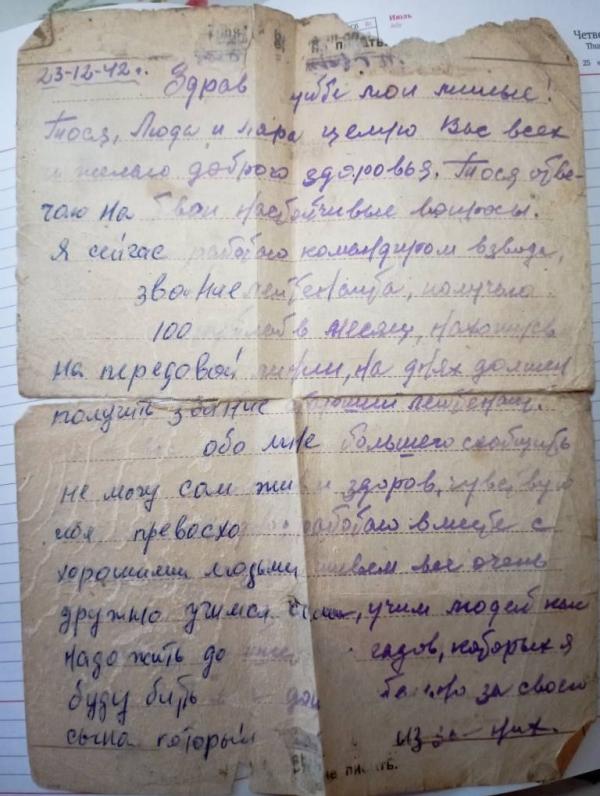 Июль
Четве
25
писать.
23-12-42 г.
Здрав уйте мои милые!
Тося, Люда и Лара целую Вас всех
и желаю доброго здоровья. Тося отве-
чаю на твои настойчивые вопросы.
я сейчас работаю командиром взвода,
звание лейтенанта, получаю
100 в месяц, нахожусь
на передовой линии, на днях должен
получить звание лейтенант.
обо мне большего сообщить
не могу сам жив и здоров, чувствую
превосхо работаю вместе с
хорошими людьми живем все очень
дружно учимся , учим людей как
надо жить до гадов, которых я
буду бить за своего
сына который из-за них.
не писать.